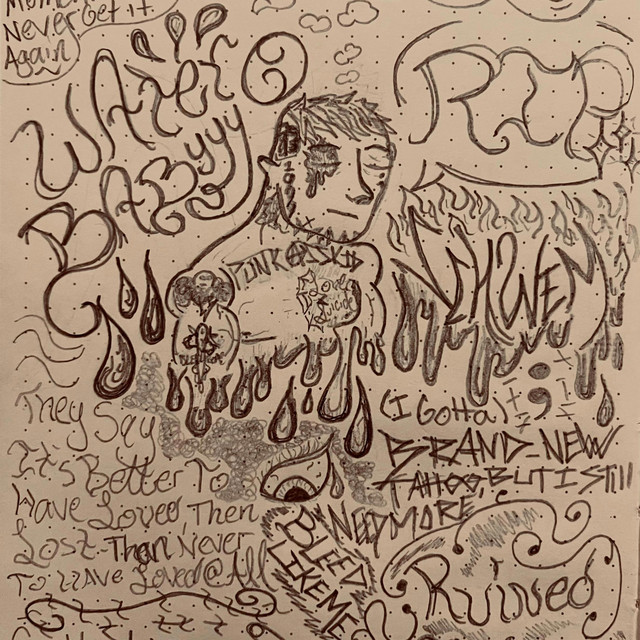 Never Get it
Again
WAter
BAByyy
RIP
PUNK ASS KID
Love
(I GOttA)
BRAND-NEW
TATTOO, BUT I Still
NEED MORE
They Say
It's Better To
Have Loved, Then
Lost Than Never
To HAVE Loved @ All
BLEED
LIKE ME
Ruined